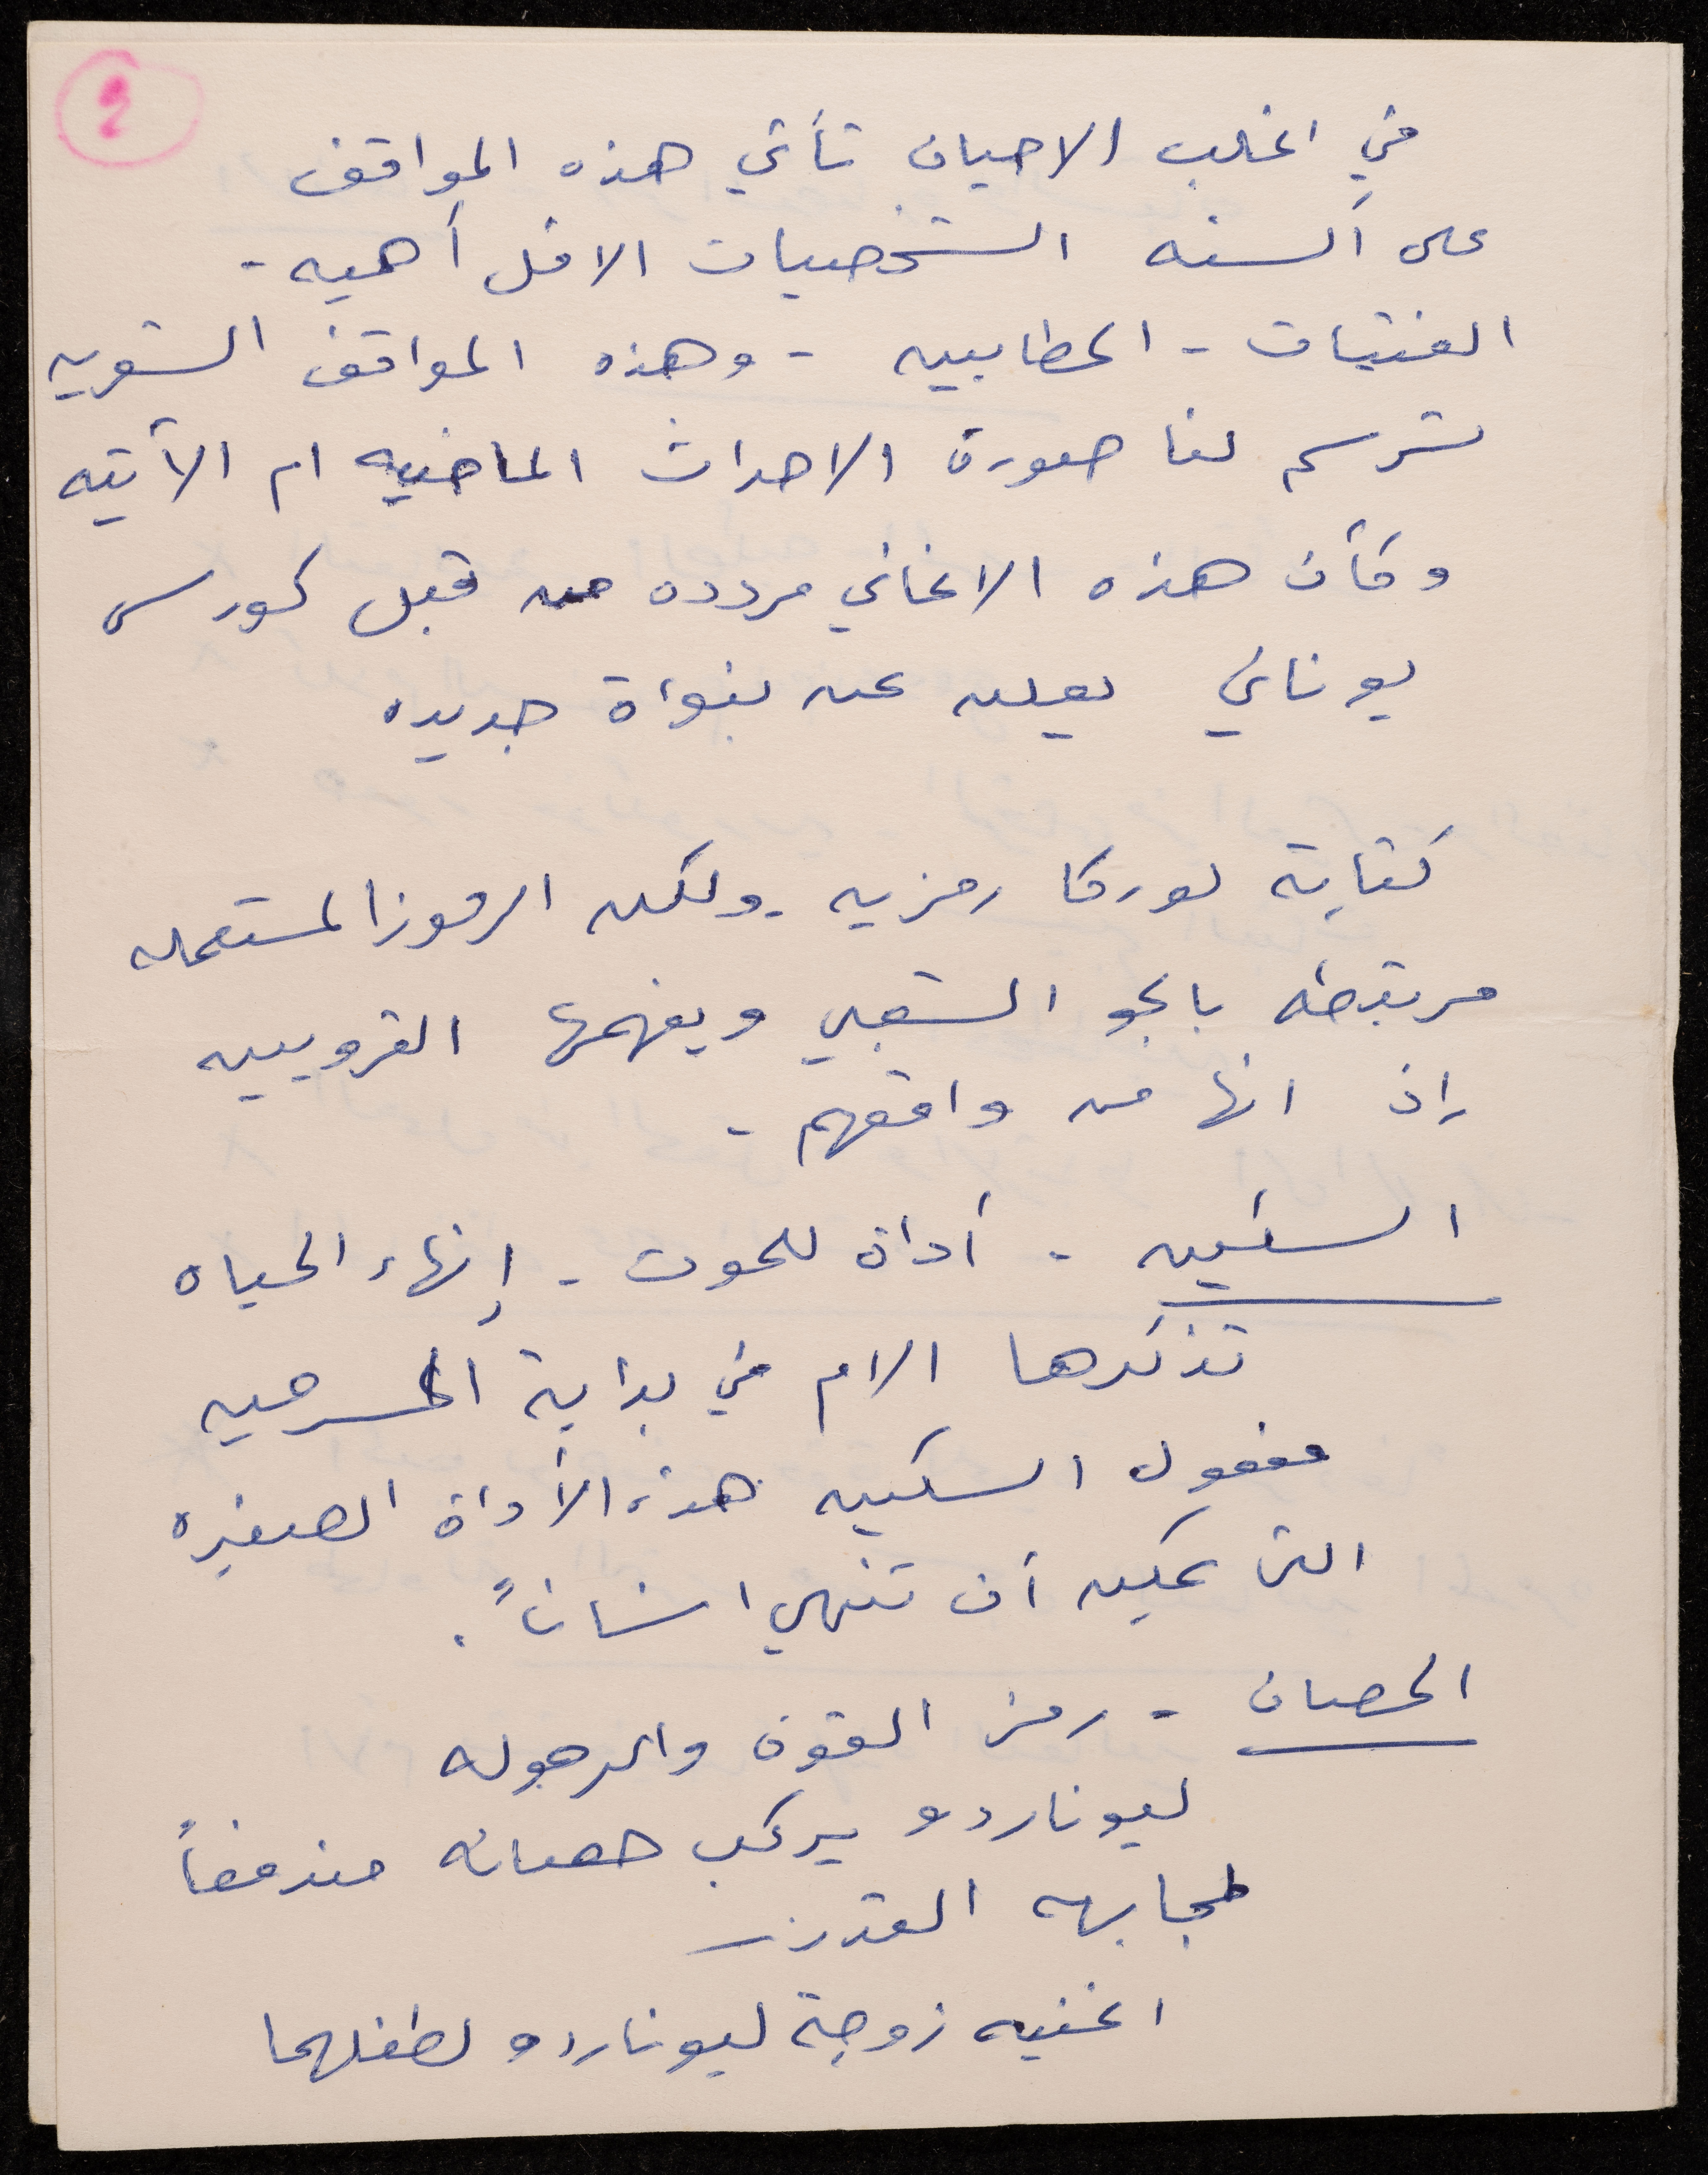 2
في اغلب الاحيان تأتي هذه المواقف
على ألسنه الشخصيات الاقل أهميه -
الفتيات - الحطابيين - وهذه المواقف الشعريه
ترسم لنا صورة الاحداث الماضيه ام الآتيه
وكأن هذه الاغاني مردده من قبل كورس
يوناني يعلن عن نبواة جديده
كتابة لوركا رمزيه - ولكن الرموز المستعمله
مرتبطه بالجو الشعبي ويفهمها القرويين
إذ انها من واقعهم -
السكين - أداة للموت - إنهاء الحياه
تذكرها الام في بداية المسرحيه
مفعول السكين هذه الأداة الصغيره
التي يمكن أن تنهي انساناً .
الحصان - رمز القوة والرجوله
ليوناردو يركب حصانه مندفعاً
لمجابهه القدر
اغنيه زوجة ليوناردو لطفلهما